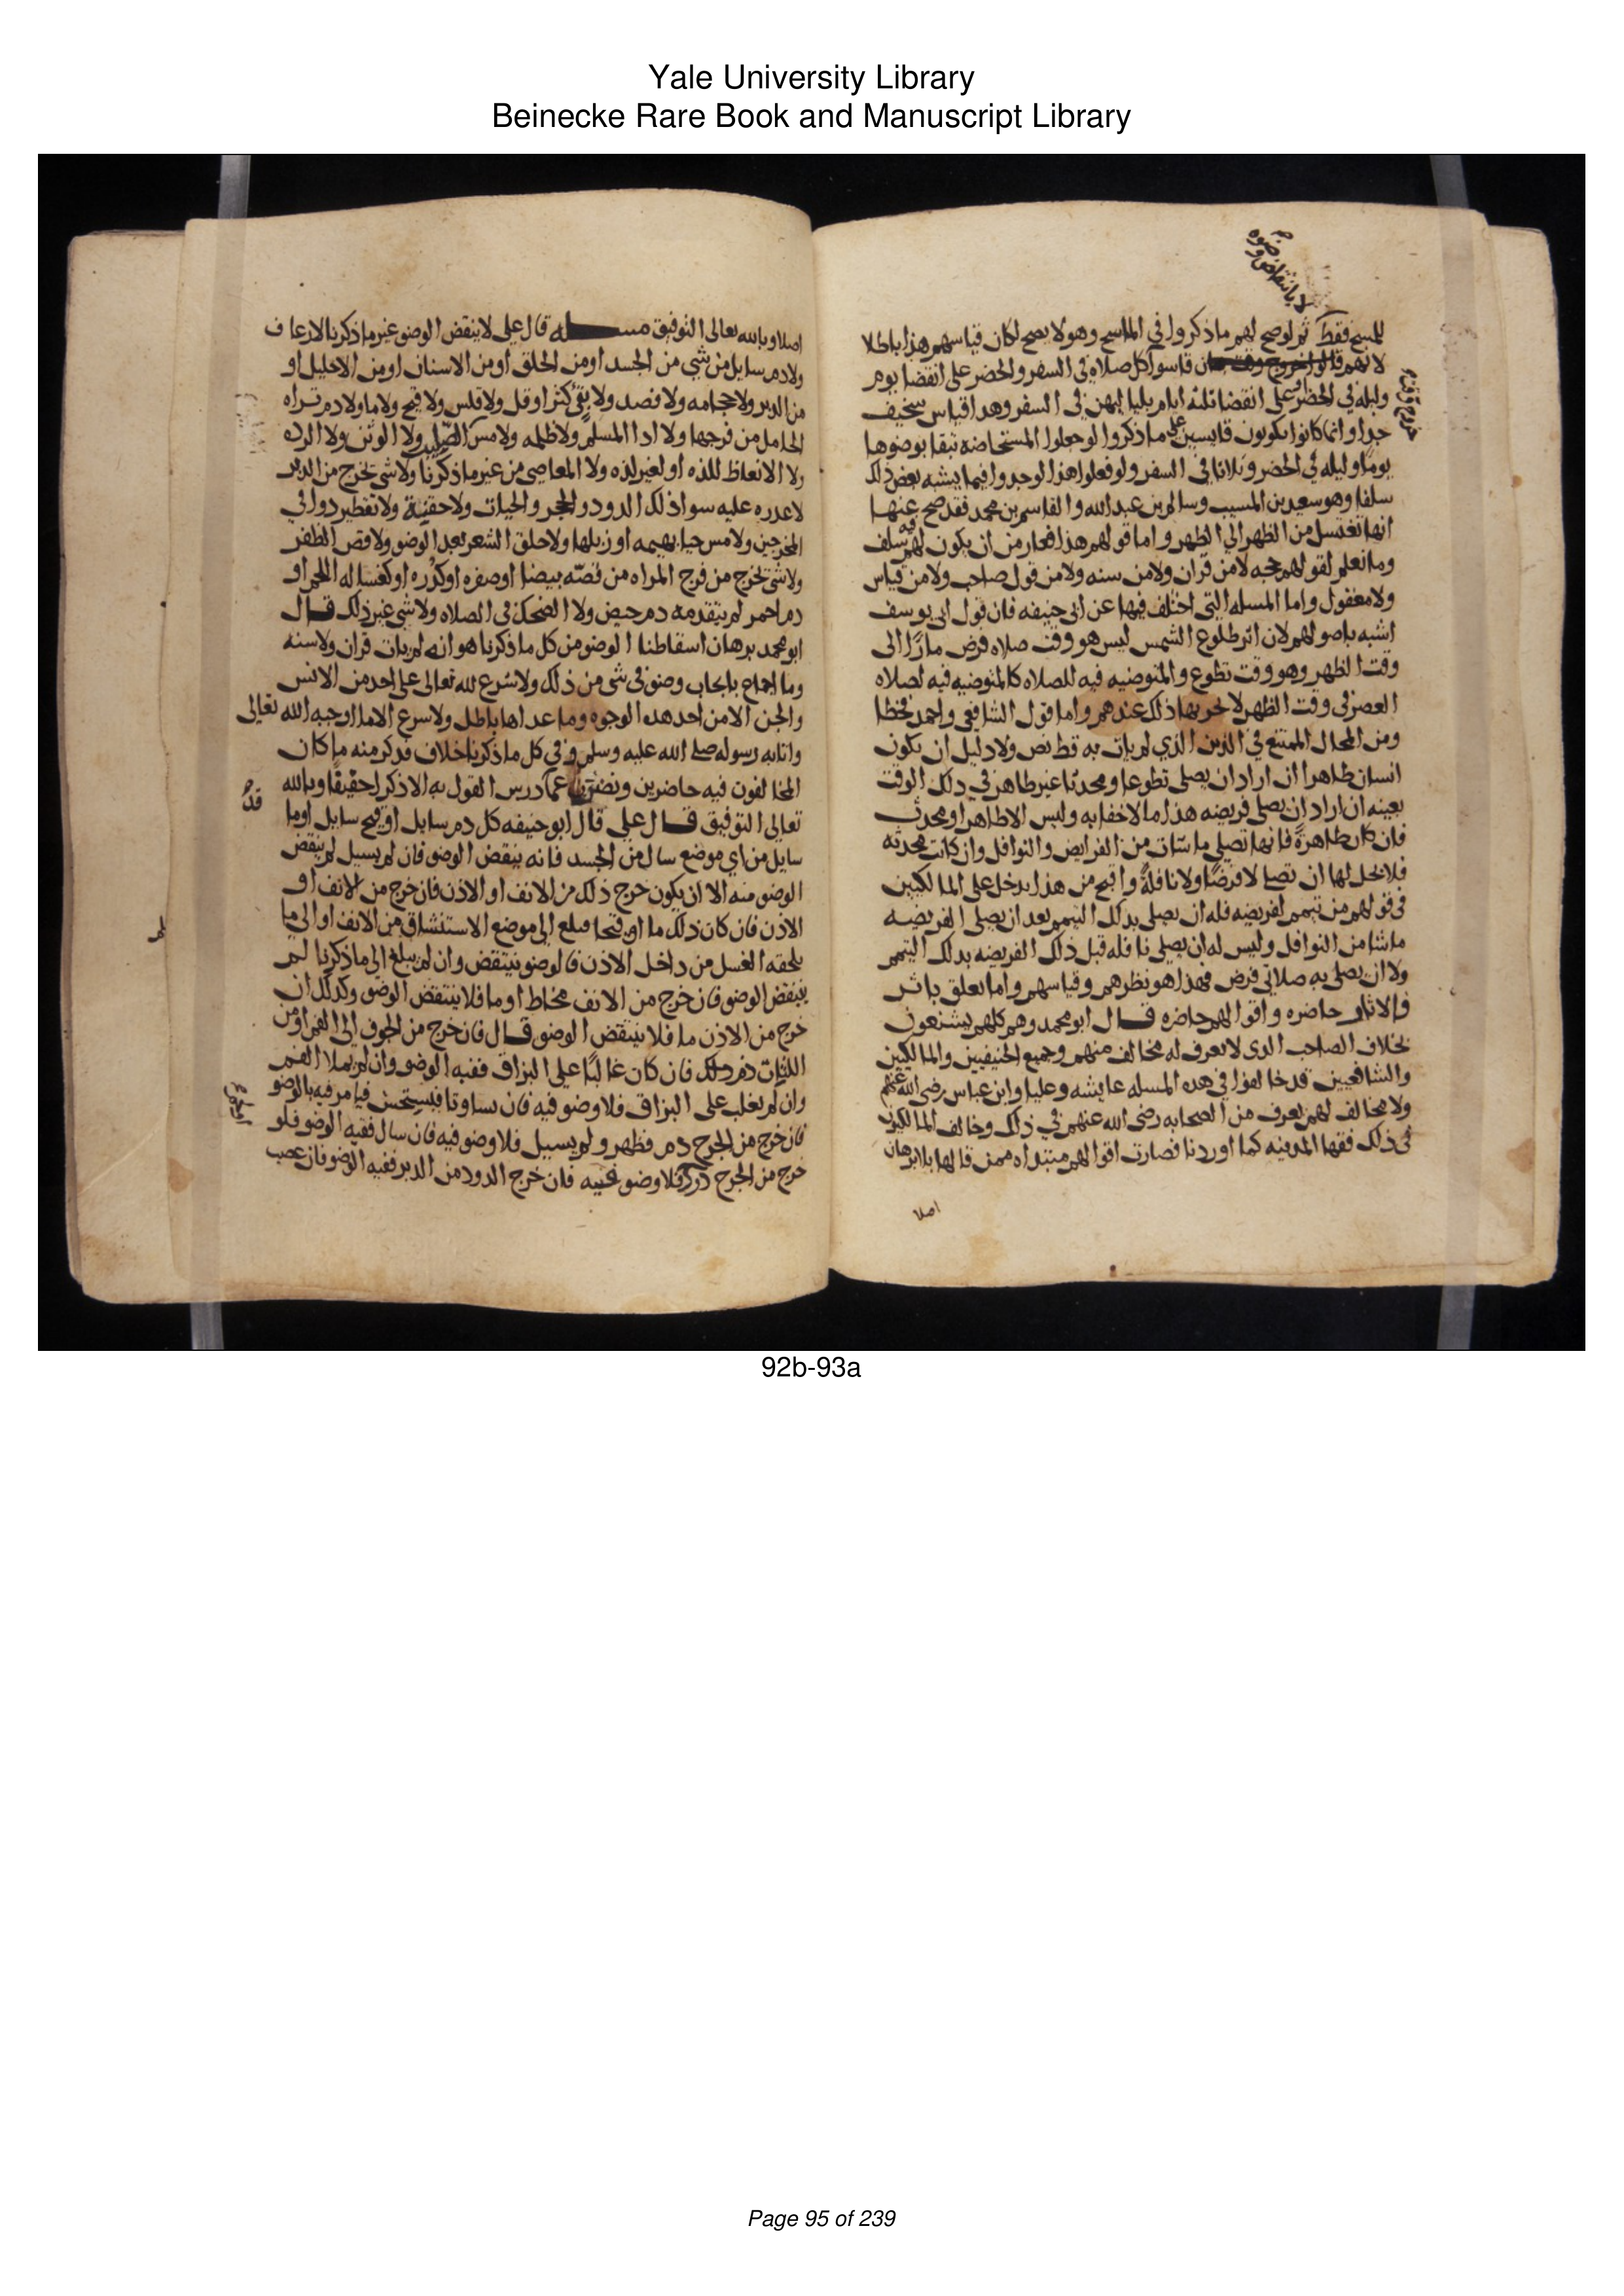 Yale University Library
Beinecke Rare Book and Manuscript Library
لا بانتقاض وضوه
للمسح فقط ثم لوصح لهم ماذكروا في الماسح وهو لا يصح لكان قياسهم هذا باطلا
لانهم قاسوا كل صلاه في السفر والحضر على انقضا يوم
وليله في الحضر على انقضا ثلثه ايام بلياليهن في السفر وهدا قياس سخيف
جدا وانما كانوا يكونون قايسين على ماذكروا لو جعلوا المستحاضه تبقا بوضوها
يوما وليله في الحضر وثلاثا في السفر ولو فعلوا هذا لوجدوا فيما يشبه بعض ذلك
سلفا وهو سعيد بن المسيب وسالم بن عبد الله والقاسم بن محمد فقد صح عنهما
انها تغتسل من الظهر الي الظهر واما قولهم هذا فعار من ان يكون لهم فيه سلف
وما نعلم لقولهم حجه لا من قران ولا من سنه ولا من قول صاحب ولا من قياس
ولا معقول واما المسله التي اختلف فيها عن ابي حنيفه فان قول ابي يوسف
اشبه باصولهم لان اثر طلوع الشمس ليس هو وقت صلاه فرض مارا الى
وقت الظهر وهو وقت تطوع والمتوضيه فيه للصلاه كالمتوضيه فيه لصلاه
العصر في وقت الظهر لا يجزيها ذلك عندهم واما قول الشافعي واحمد فخطا
ومن المحال الممتنع في الدين الذي لم يات به قط نص ولا دليل ان يكون
انسان طاهرا ان اراد ان يصلي تطوعا ومحدثا غير طاهر في ذلك الوقت
بعينه ان اراد ان يصلي فريضه هذا ما لا خفا به وليس الا طاهرا او محدث
فان كان طاهرة فانها تصلي ما شات من الفرايض والنوافل وان كانت محدثه
فلا يحل لها ان تصلي لا فرضا ولا نافلة واقبح من هذا يدخل على المالكيين
في قولهم من تيمم لفريضه فله ان يصلي بذلك التيمم بعد ان يصلي الفريضه
ماشا من النوافل وليس له ان يصلي نافله قبل ذلك الفريضه بذلك التيمم
ولا ان يصلي به صلاتي فرض فهذا هو نظرهم وقياسهم واما تعلق باثر
فالاثار حاضره واقوالهم حاضره قال ابو محمد وهم كلهم يشنعون
بخلاف الصاحب الذي لا يعرف له مخالف منهم وجميع الحنيفيين والمالكيين
والشافعيين قد خالفوا في هذه المسله عايشه وعليا وابن عباس رضي الله عنهم
ولا مخالف لهم يعرف من الصحابه رضي الله عنهم في ذلك وخالف المالكيون
في ذلك فقها المدينه كما اوردنا فصارت اقوالهم مبتداه ممن قالها بلا برهان
اصلا
اصلا وبالله تعالى التوفيق مسله قال علي لا ينقض الوضو غير ماذكرنا لا رعاف
ولا دم سايل من شي من الجسد او من الحلق او من الاسنان او من الاحليل او
من الدبر ولا حجامه ولا فصد ولا قي كثر او قل ولا قلس ولا قيح ولا ما ولا دم تراه
الحامل من فرجها ولا اذا المسلم ولا ظلمه ولا مس الصليب ولا الوثن ولا الرده
ولا الانعاظ للذه او لغير لذه ولا المعاصي من غير ماذكرنا ولا شي يخرج من الدبر
لا عذره عليه سوا ذلك الدود والحجر والحيات ولا حقنة ولا تقطير دوا في
المخرجين ولا مس حيا بهيمه او قبلها ولا حلق الشعر بعد الوضو ولا قص الظفر
ولا شي يخرج من فرج المراه من قصه بيضا او صفره او كدره او كغساله اللحم او
دم احمر لم يتقدمه دم حيض ولا الضحك في الصلاه ولا شي غير ذلك قال
ابو محمد برهان اسقاطنا الوضو من كل ماذكرنا هو انه لم يات قران ولا سنه
وما اجماع بايجاب وضو في شي من ذلك ولا شرع لله تعالى على احد من الانس
والجن الا من احد هذه الوجوه وما عداها باطل ولا شرع الا ما اوجبه الله تعالى
واتانا به رسوله صلى الله عليه وسلم وفي كل ماذكرنا خلاف نذكر منه ما كان
المخالفون فيه حاضرين ونضرب عما درس القول به الا ذكرا خفيفا وبالله
قد
تعالى التوفيق قال علي قال ابو حنيفه كل دم سايل او قيح سايل او ما
سايل من اي موضع سال من الجسد فانه ينقض الوضو فان لم يسيل لم ينقض
الوضو منه الا ان يكون خرج ذلك من الانف او الاذن فان خرج من الانف او
الاذن فان كان ذلك ما او قيحا فبلغ الى موضع الاستنشاق من الانف او الى ما
يلحقه الغسل من داخل الاذن فالوضو ينتقض وان لم يبلغ الى ماذكرنا لم
ينتقض الوضو فان خرج من الانف مخاط او ما فلا ينتقض الوضو وكذلك ان
خرج من الاذن ما فلا ينتقض الوضو قال فان خرج من الجوف الى الفم او من
اللثات دم فان كان غالبا على البزاق ففيه الوضو وان لم يملا الفم
وان لم يغلب على البزاق فلا وضو فيه فان تساوتا فيستحسن فيامر فيه بالوضو
فان خرج من الجرح دم فظهر ولم يسيل فلا وضو فيه فان سال ففيه الوضو فلو
خرج من الجرح دود فلا وضو فيه فان خرج الدود من الدبر ففيه الوضو فان عصب
92b-93a
Page 95 of 239